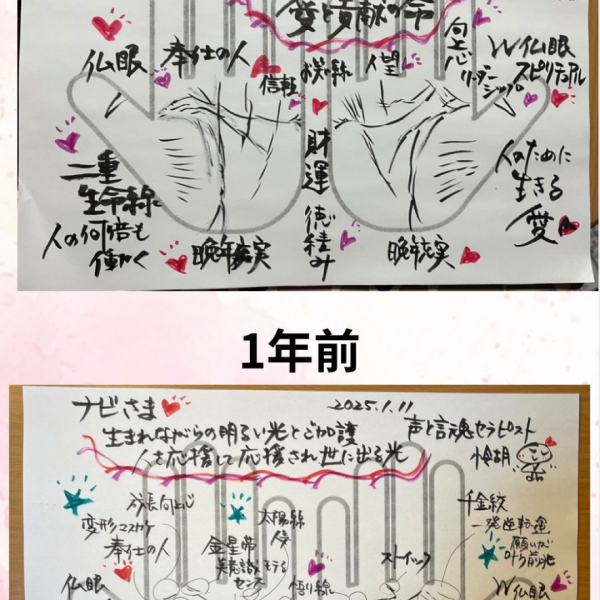 愛と貢献の命
向上心
仏眼
奉仕の人
信頼
お笑い線
人望
リーダーシップ
W仏眼
スピリチュアル
二重
生命線
人の何倍も
働く
財運
徳積み
人のために
生きる
愛
晩年充実
晩年充実
1年前
ナビさま
2025.1.11
生まれながらの明るい光とご加護
声と言魂セラピスト
人を応援して応援され世に出る光
成長向上心
変形マスカケ
奉仕の人
仏眼
太陽線
人気
金星帯
美意識
センス
悟り線
ストイック
千金紋
一発逆転運
願いが
叶う前兆
W仏眼